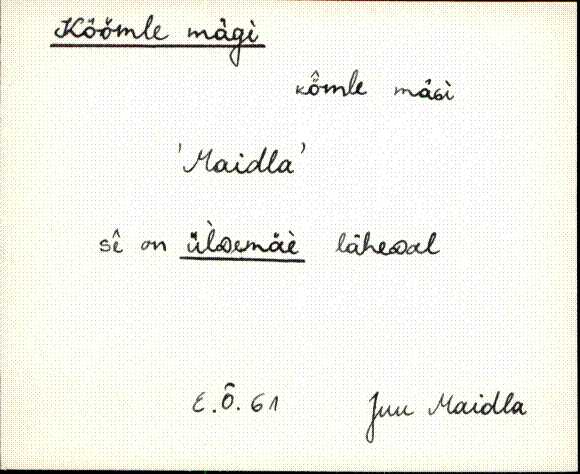 Köömle mägi
kö̂mle mäɢì
'Maidla'
sê on ülᴅemäè läheᴅal
E.Õ. 61 Juu Maidla